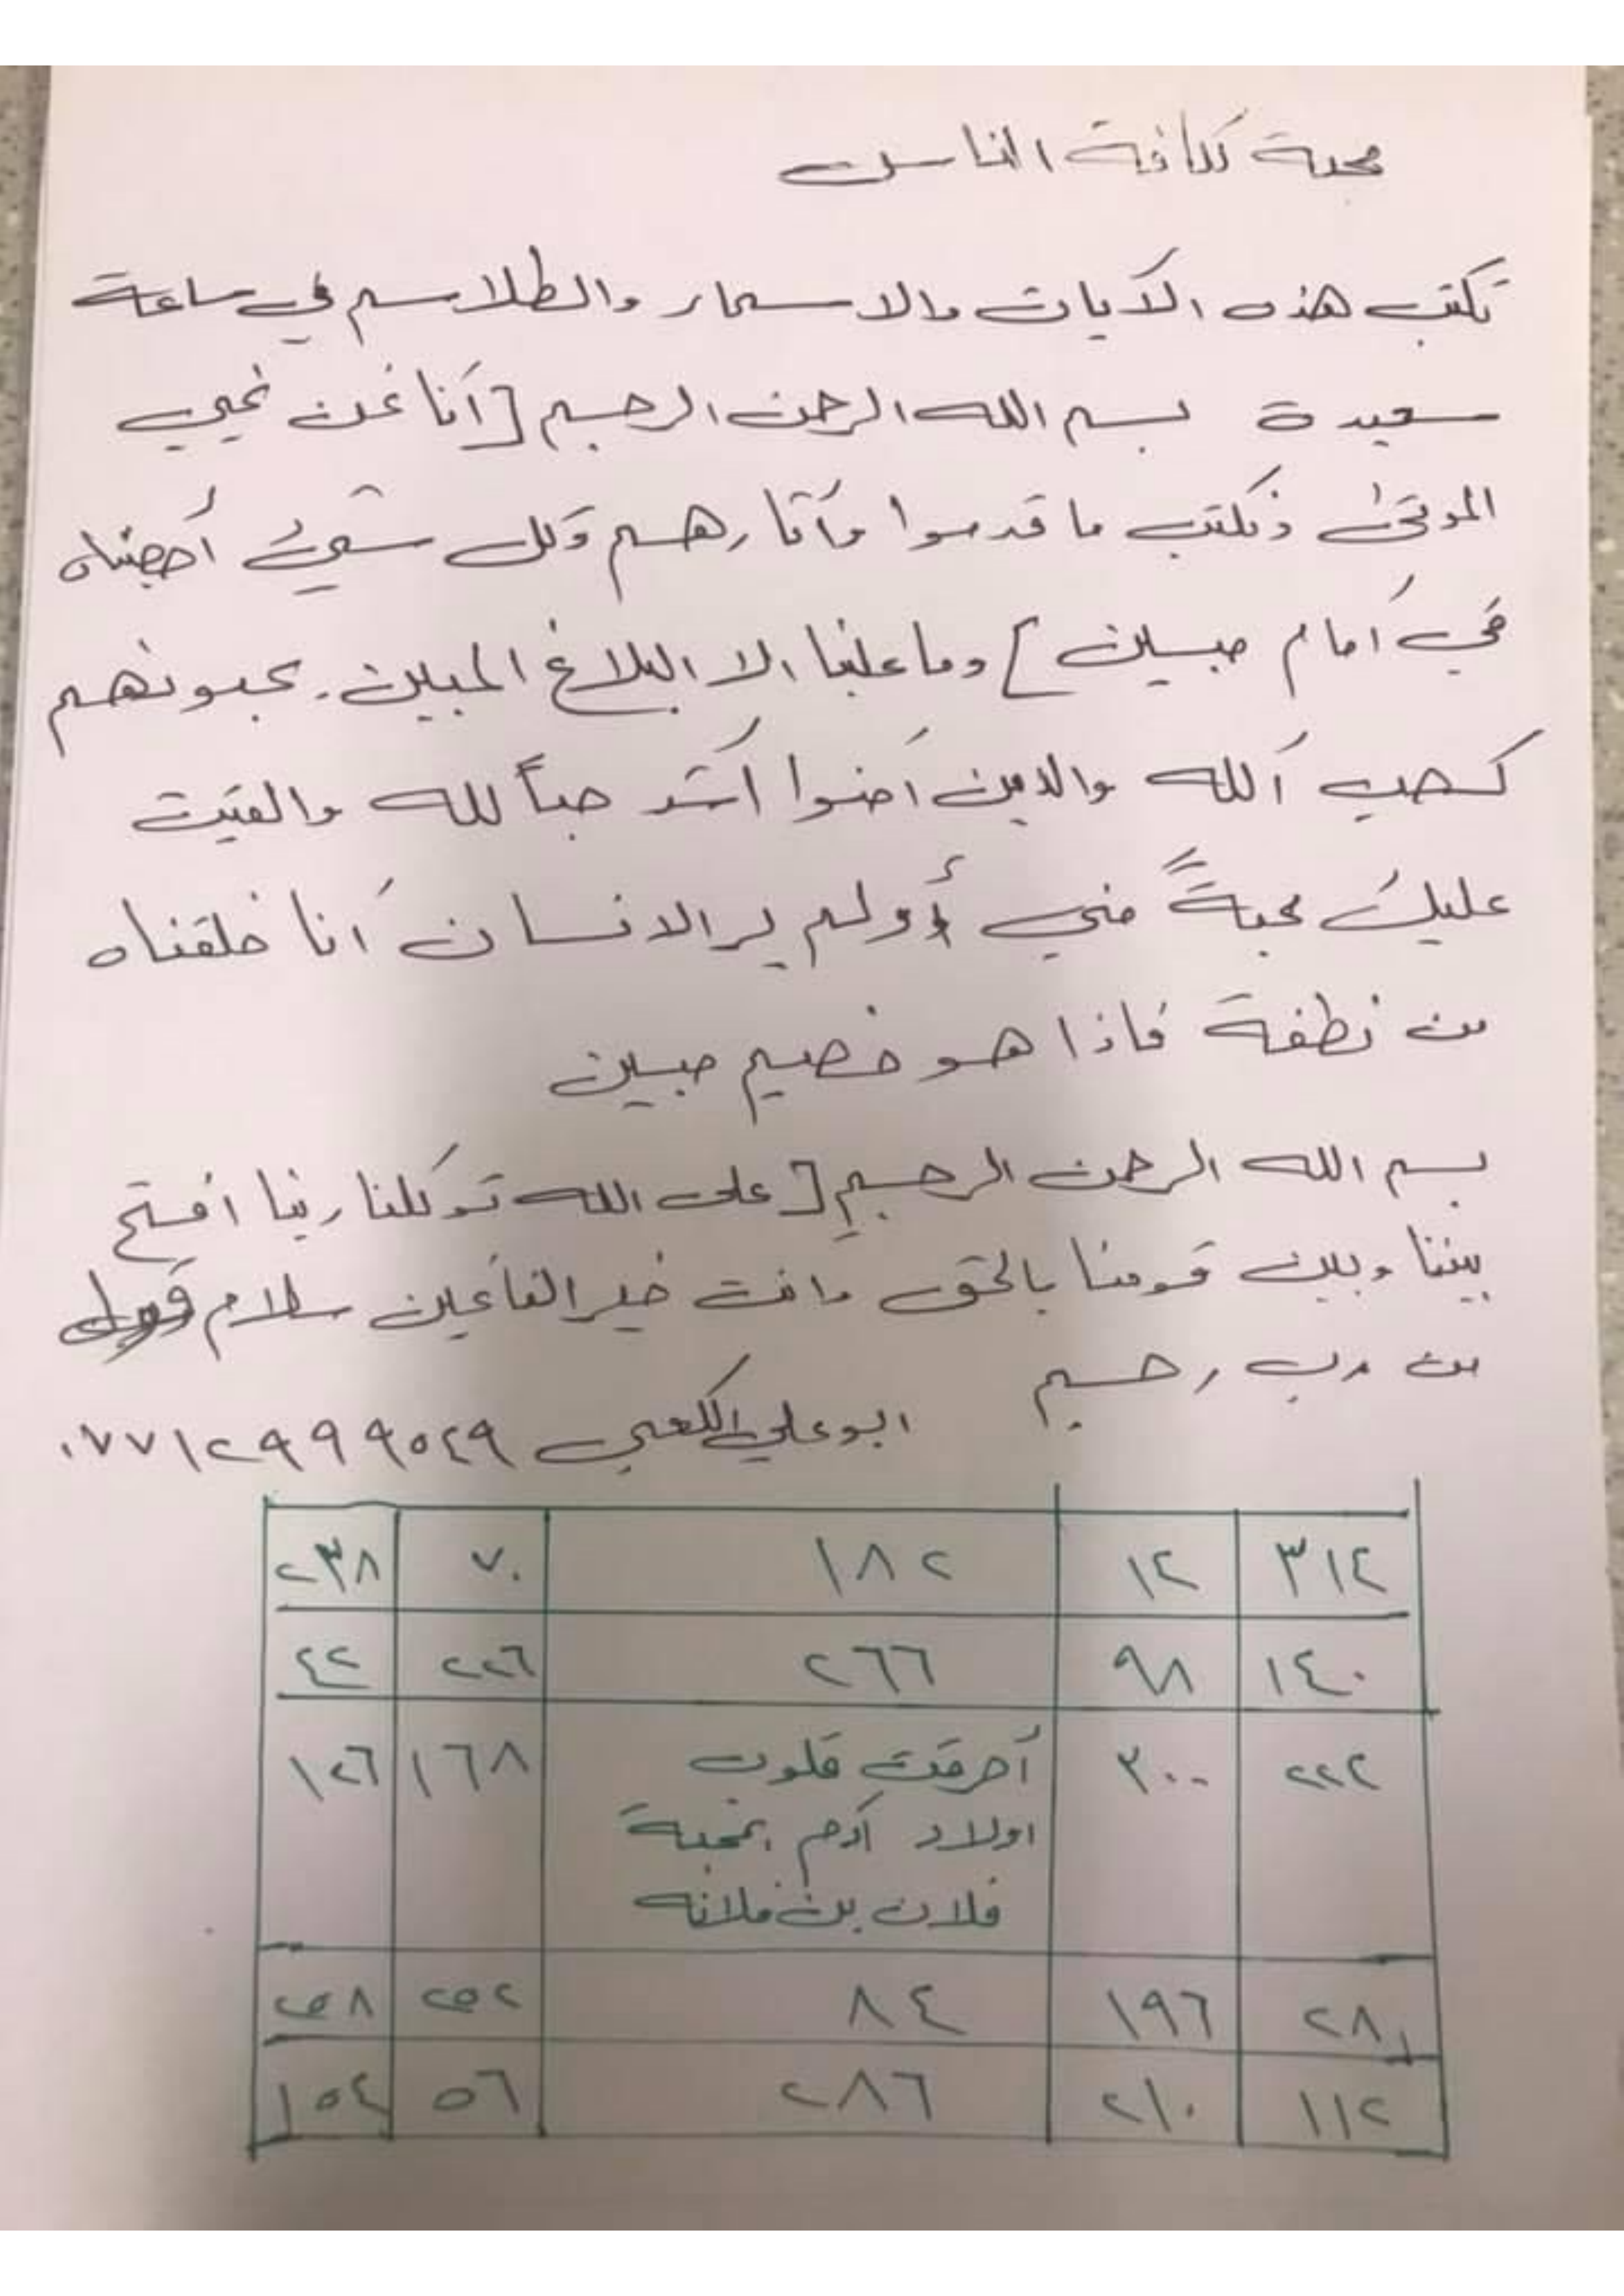 محبة لكافة الناس
تكتب هذه الآيات والاسماء والطلاسم في ساعة
سعيدة بسم الله الرحمن الرحيم [أنا نحن نحيي
الموتى ونكتب ما قدموا وآثارهم وكل شيءٍ أحصيناه
في أمام مبين] وما علينا الا البلاغ المبين. يحبونهم
كحب الله والذين آمنوا أشد حباً لله والقيت
عليك محبةً مني أولم ير الانسان أنا خلقناه
من نطفة فاذا هو خصيم مبين
بسم الله الرحمن الرحيم [على الله توكلنا ربنا افتح
بيننا وبين قومنا بالحق وانت خير الفاتحين سلام قولا
من رب رحيم
ابو علي الكعبي ٠٧٧١٢٩٩٩٥٤٩
٣١٤ ١٤ ١٨٢ ٧٠ ٢٣٨
١٤٠ ٩٨ ٢٦٦ ٢٢٦ ٤٢
٢٢٤ ٣٠٠ أحرقت قلوب ١٦٨ ١٢٦
اولاد آدم بمحبة
فلان بن فلانه
٢٨ ١٩٦ ٨٤ ٢٥٢ ٢٥٨
١١٢ ٢١٠ ٢٨٦ ٥٦ ١٥٤